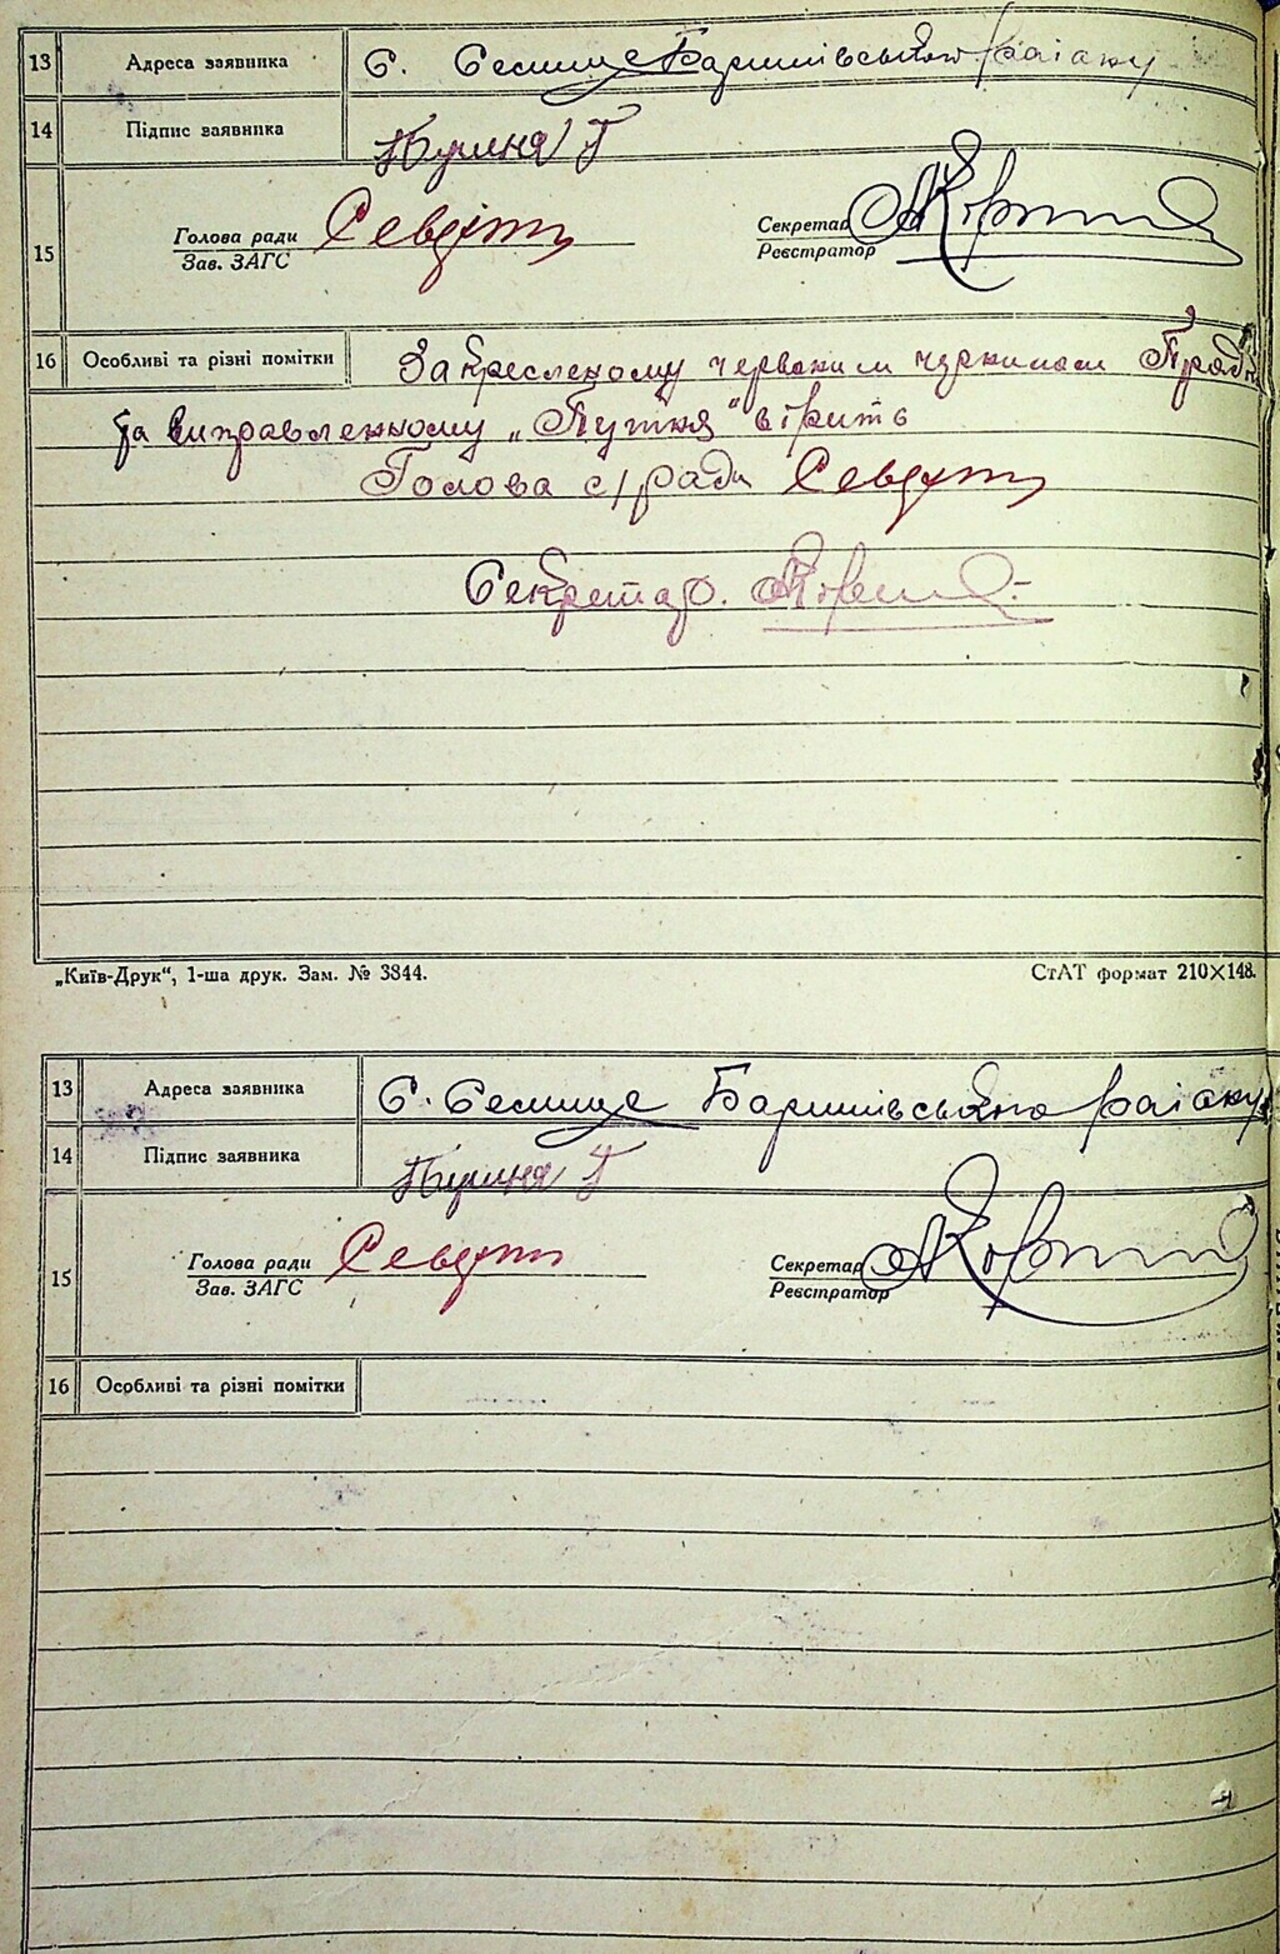 13 Адреса заявника С. Селище Баришівського району
14 Підпис заявника Пушня Г
15 Голова ради Секретар
Зав. ЗАГС Реєстратор
16 Особливі та різні помітки Закресленому червоним чорнилам
та виправленному „Путня“ вірить
Голова с/ради
Секретар.
„Київ-Друк“, 1-ша друк. Зам. № 3844. СтАТ формат 210×148.
13 Адреса заявника С. Селище Баришівського району
14 Підпис заявника
15 Голова ради Секретар
Зав. ЗАГС Реєстратор
16 Особливі та різні помітки